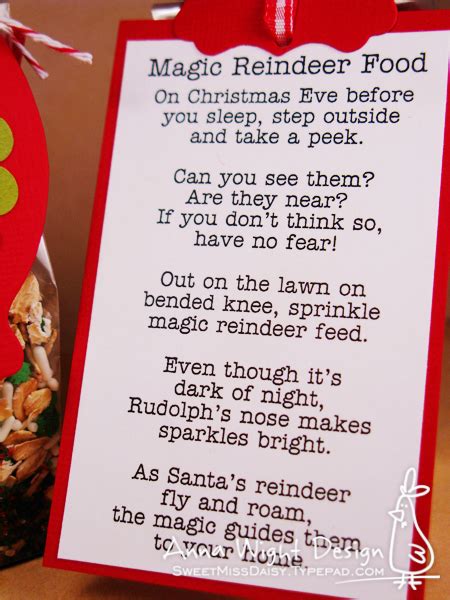 Magic Reindeer Food
On Christmas Eve before
you sleep, step outside
and take a peek.
Can you see them?
Are they near?
If you don't think so,
have no fear!
Out on the lawn on
bended knee, sprinkle
magic reindeer feed.
Even though it's
dark of night,
Rudolph's nose makes
sparkles bright.
As Santa's reindeer
fly and roam,
the magic guides them
to your home.
Anna Wight Design
SweetMissDaisy.Typepad.com